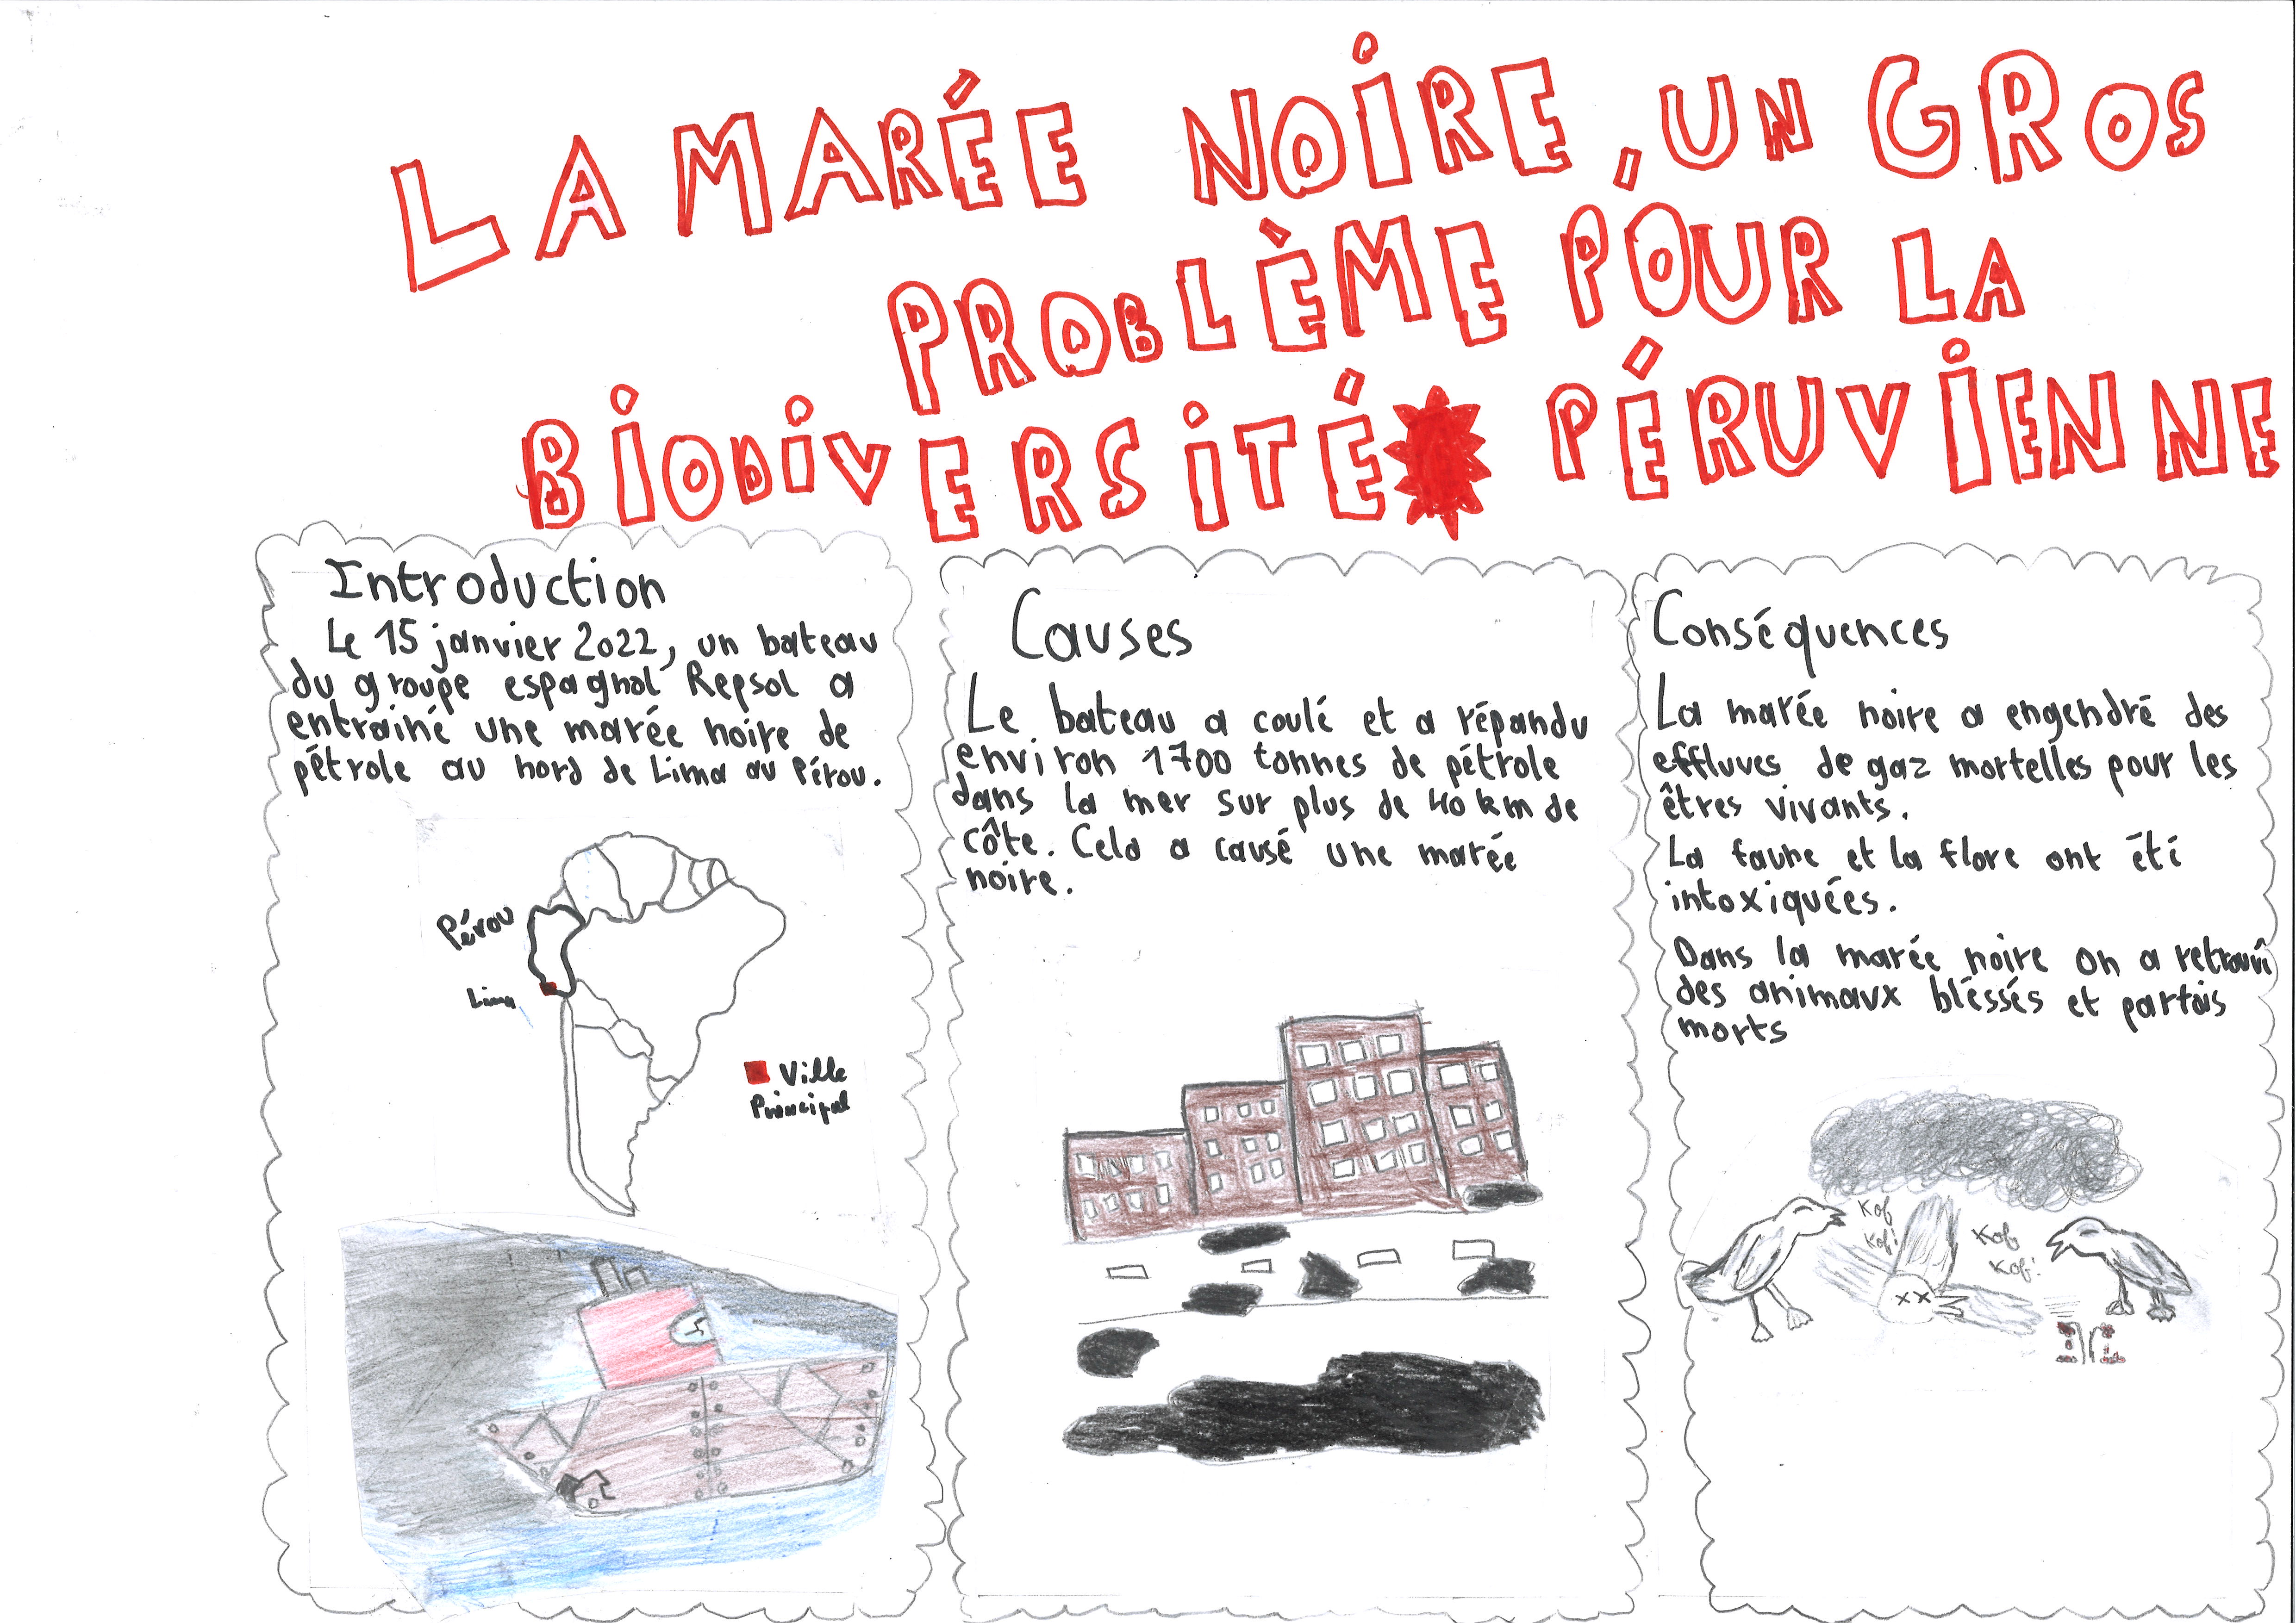 LA MARÉE NOIRE, UN GROS
PROBLÈME POUR LA
BIODIVERSITÉ PÉRUVIENNE
Introduction
Le 15 janvier 2022, un bateau
du groupe espagnol Repsol a
entrainé une marée noire de
pétrole au nord de Lima au Pérou.
Pérou
Lima
Ville
Principal
Causes
Le bateau a coulé et a répandu
environ 1700 tonnes de pétrole
dans la mer sur plus de 40 km de
côte. Cela a causé une marée
noire.
Conséquences
La marée noire a engendré des
effluves de gaz mortelles pour les
êtres vivants.
La faune et la flore ont été
intoxiquées.
Dans la marée noire on a retrouvé
des animaux blessés et parfois
morts
Kof
Kof!
Kof
Kof!
xx